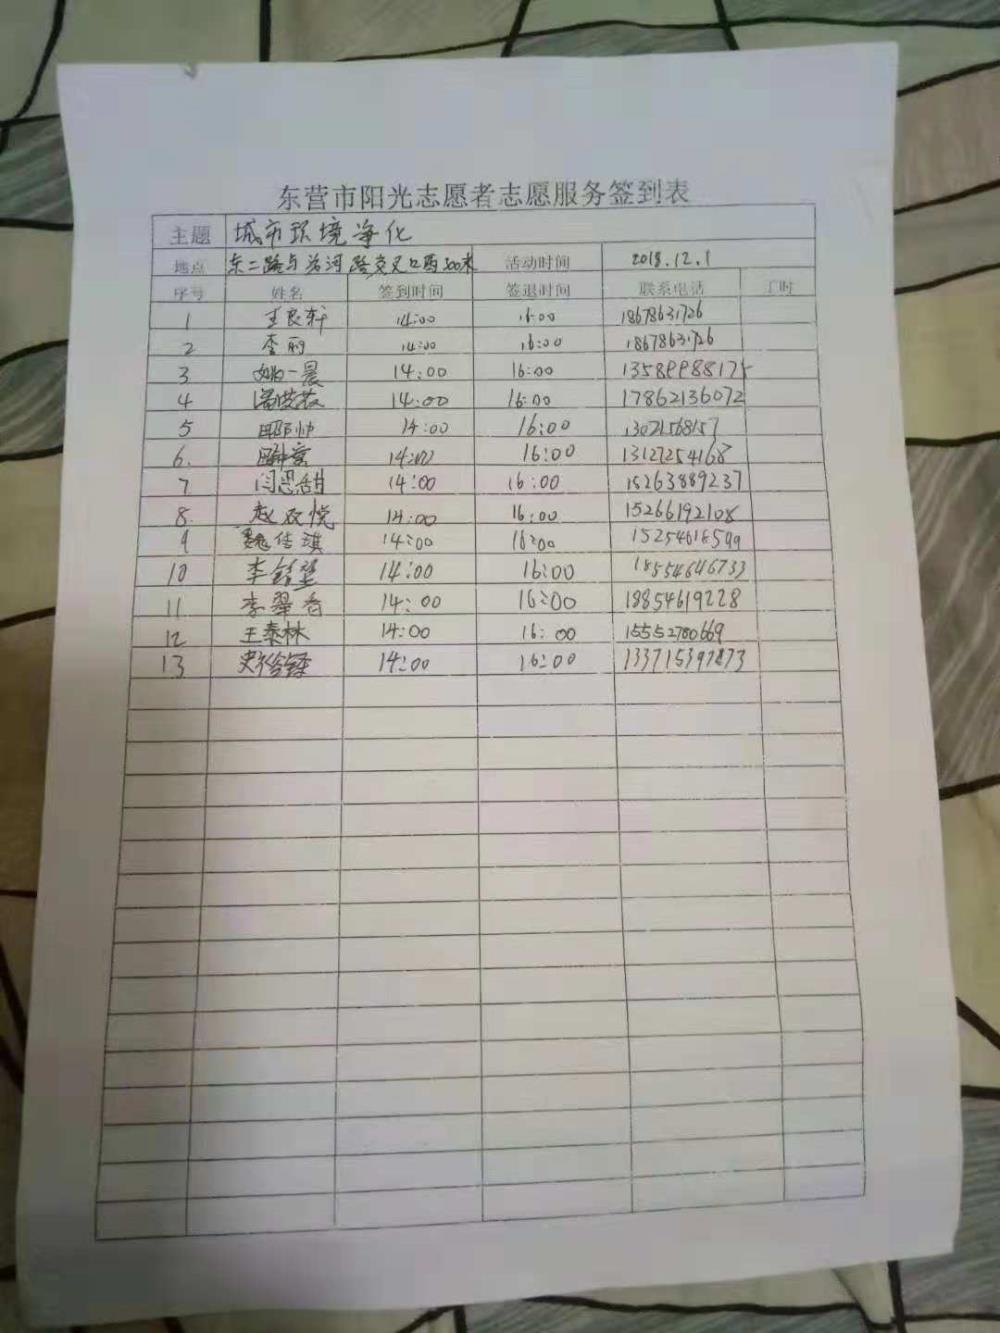 东营市阳光志愿者志愿服务签到表
主题 城市环境净化
地点 东二路与治河路交叉口西300米 活动时间 2018.12.1
序号 姓名 签到时间 签退时间 联系电话 工时
1 王良轩 14:00 16:00 18678631726
2 李丽 14:00 16:00 18678631726
3 姚一晨 14:00 16:00 13589988175
4 14:00 16:00 17862136072
5 邵帅 14:00 16:00 13021568157
6. 14:00 16:00 13127254168
7 闫思甜 14:00 16:00 15263889237
8. 赵双悦 14:00 16:00 15266192108
9 魏佳琪 14:00 16:00 15254618599
10 14:00 16:00 18554646733
11 李翠香 14:00 16:00 18854619228
12 王泰林 14:00 16:00 15552780669
13 14:00 16:00 133715397873